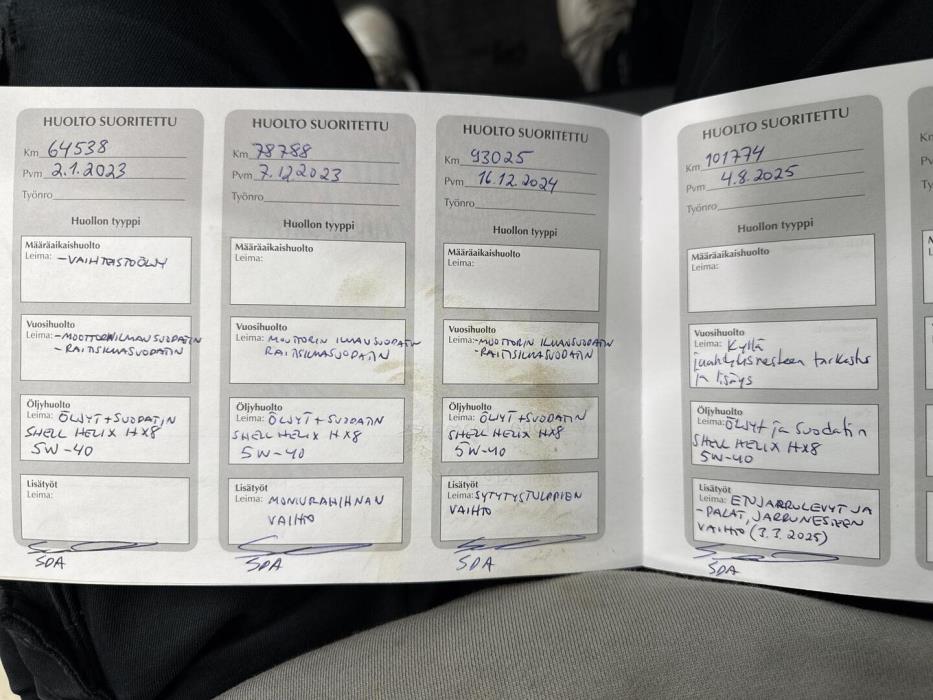 HUOLTO SUORITETTU
Km 64538
Pvm 2.1.2023
Työnro
Huollon tyyppi
Määräaikaishuolto
Leima: -VAIHTEISTOÖLJY
Vuosihuolto
Leima: -MOOTTORINILMANSUODATIN
-RAITISILMASUODATIN
Öljyhuolto
Leima: ÖLJYT+SUODATIN
SHELL HELIX HX8
5W-40
Lisätyöt
Leima:
SDA
HUOLTO SUORITETTU
Km 78788
Pvm 7.12.2023
Työnro
Huollon tyyppi
Määräaikaishuolto
Leima:
Vuosihuolto
Leima: MOOTTORIN ILMANSUODATIN
RAITISILMASUODATIN
Öljyhuolto
Leima: ÖLJYT+SUODATIN
SHELL HELIX HX8
5W-40
Lisätyöt
Leima: MONIURAHIHNAN
VAIHTO
SDA
HUOLTO SUORITETTU
Km 93025
Pvm 16.12.2024
Työnro
Huollon tyyppi
Määräaikaishuolto
Leima:
Vuosihuolto
Leima:-MOOTTORIN ILMANSUODATIN
-RAITISILMASUODATIN
Öljyhuolto
Leima: ÖLJYT+SUODATIN
SHELL HELIX HX8
5W-40
Lisätyöt
Leima: SYTYTYSTULPPIEN
VAIHTO
SDA
HUOLTO SUORITETTU
Km 101774
Pvm 4.8.2025
Työnro
Huollon tyyppi
Määräaikaishuolto
Leima:
Vuosihuolto
Leima: Kyllä
jäähdytysnesteen tarkastus
ja lisäys
Öljyhuolto
Leima: Öljyt ja suodatin
SHELL HELIX HX8
5W-40
Lisätyöt
Leima: ETUJARRULEVYT JA
-PALAT, JARRUNESTEEN
VAIHTO (3.3.2025)
SDA